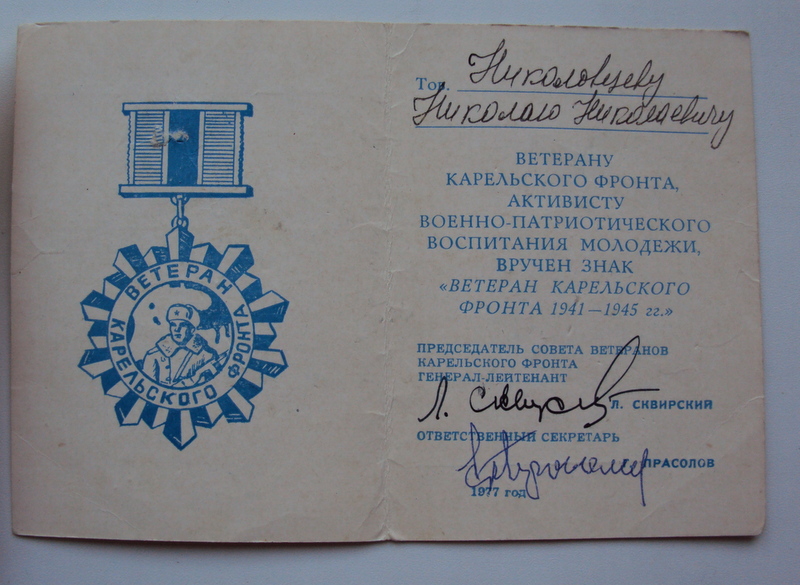 ВЕТЕРАН
КАРЕЛЬСКОГО ФРОНТА
Тов. Николовцеву
Николаю Николаевичу
ВЕТЕРАНУ
КАРЕЛЬСКОГО ФРОНТА,
АКТИВИСТУ
ВОЕННО-ПАТРИОТИЧЕСКОГО
ВОСПИТАНИЯ МОЛОДЕЖИ,
ВРУЧЕН ЗНАК
«ВЕТЕРАН КАРЕЛЬСКОГО
ФРОНТА 1941—1945 гг.»
ПРЕДСЕДАТЕЛЬ СОВЕТА ВЕТЕРАНОВ
КАРЕЛЬСКОГО ФРОНТА
ГЕНЕРАЛ-ЛЕЙТЕНАНТ
Л. Сквирск
Л. СКВИРСКИЙ
ОТВЕТСТВЕННЫЙ СЕКРЕТАРЬ
ПРАСОЛОВ
1977 год